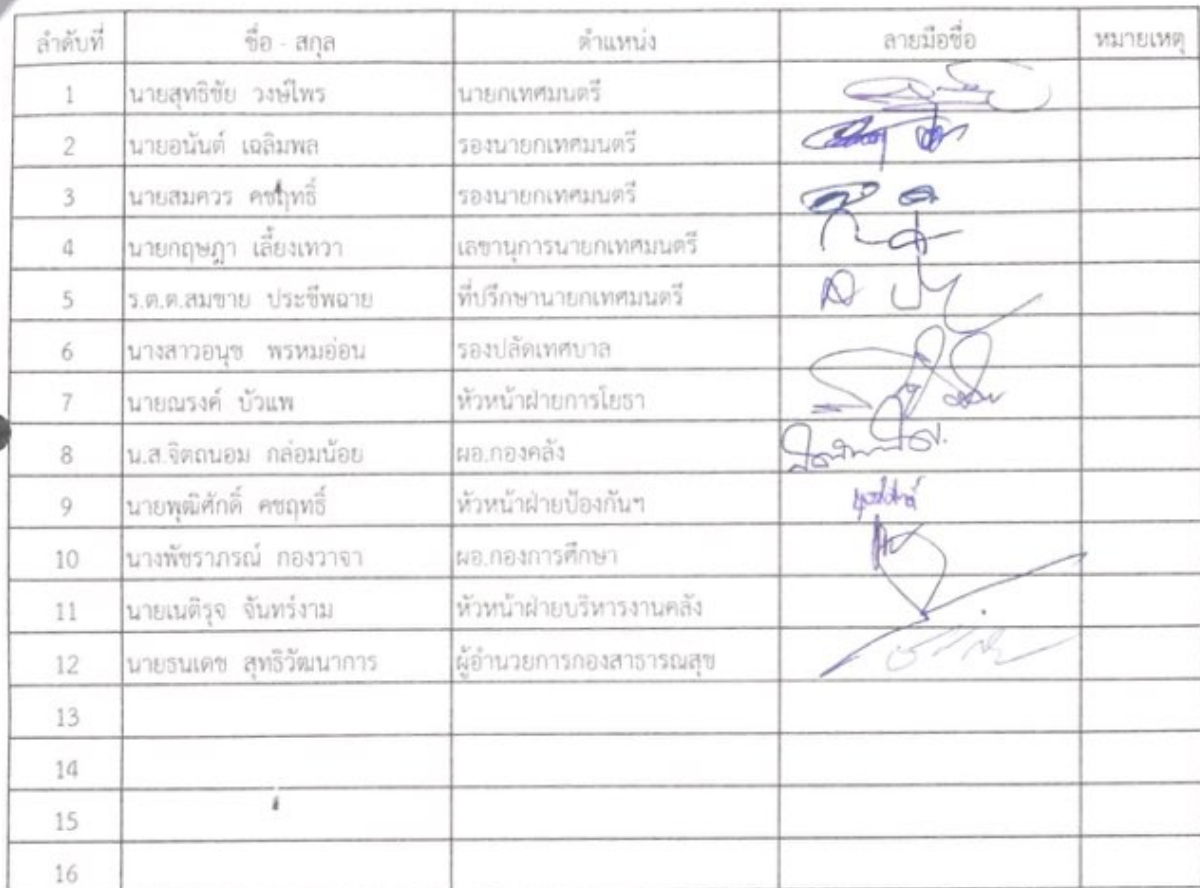 ลำดับที่ ชื่อ - สกุล ตำแหน่ง ลายมือชื่อ หมายเหตุ
1 นายสุทธิชัย วงษ์ไพร นายกเทศมนตรี
2 นายอนันต์ เฉลิมพล รองนายกเทศมนตรี
3 นายสมควร คชฤทธิ์ รองนายกเทศมนตรี
4 นายกฤษฎา เลี้ยงเทวา เลขานุการนายกเทศมนตรี
5 ร.ต.ต.สมชาย ประชีพฉาย ที่ปรึกษานายกเทศมนตรี
6 นางสาวอนุช พรหมอ่อน รองปลัดเทศบาล
7 นายณรงค์ บัวแพ หัวหน้าฝ่ายการโยธา
8 น.ส.จิตถนอม กล่อมน้อย ผอ.กองคลัง
9 นายพุฒิศักดิ์ คชฤทธิ์ หัวหน้าฝ่ายป้องกันฯ
10 นางพัชราภรณ์ กองวาจา ผอ.กองการศึกษา
11 นายเนติรุจ จันทร์งาม หัวหน้าฝ่ายบริหารงานคลัง
12 นายธนเดช สุทธิวัฒนาการ ผู้อำนวยการกองสาธารณสุข
13
14
15
16